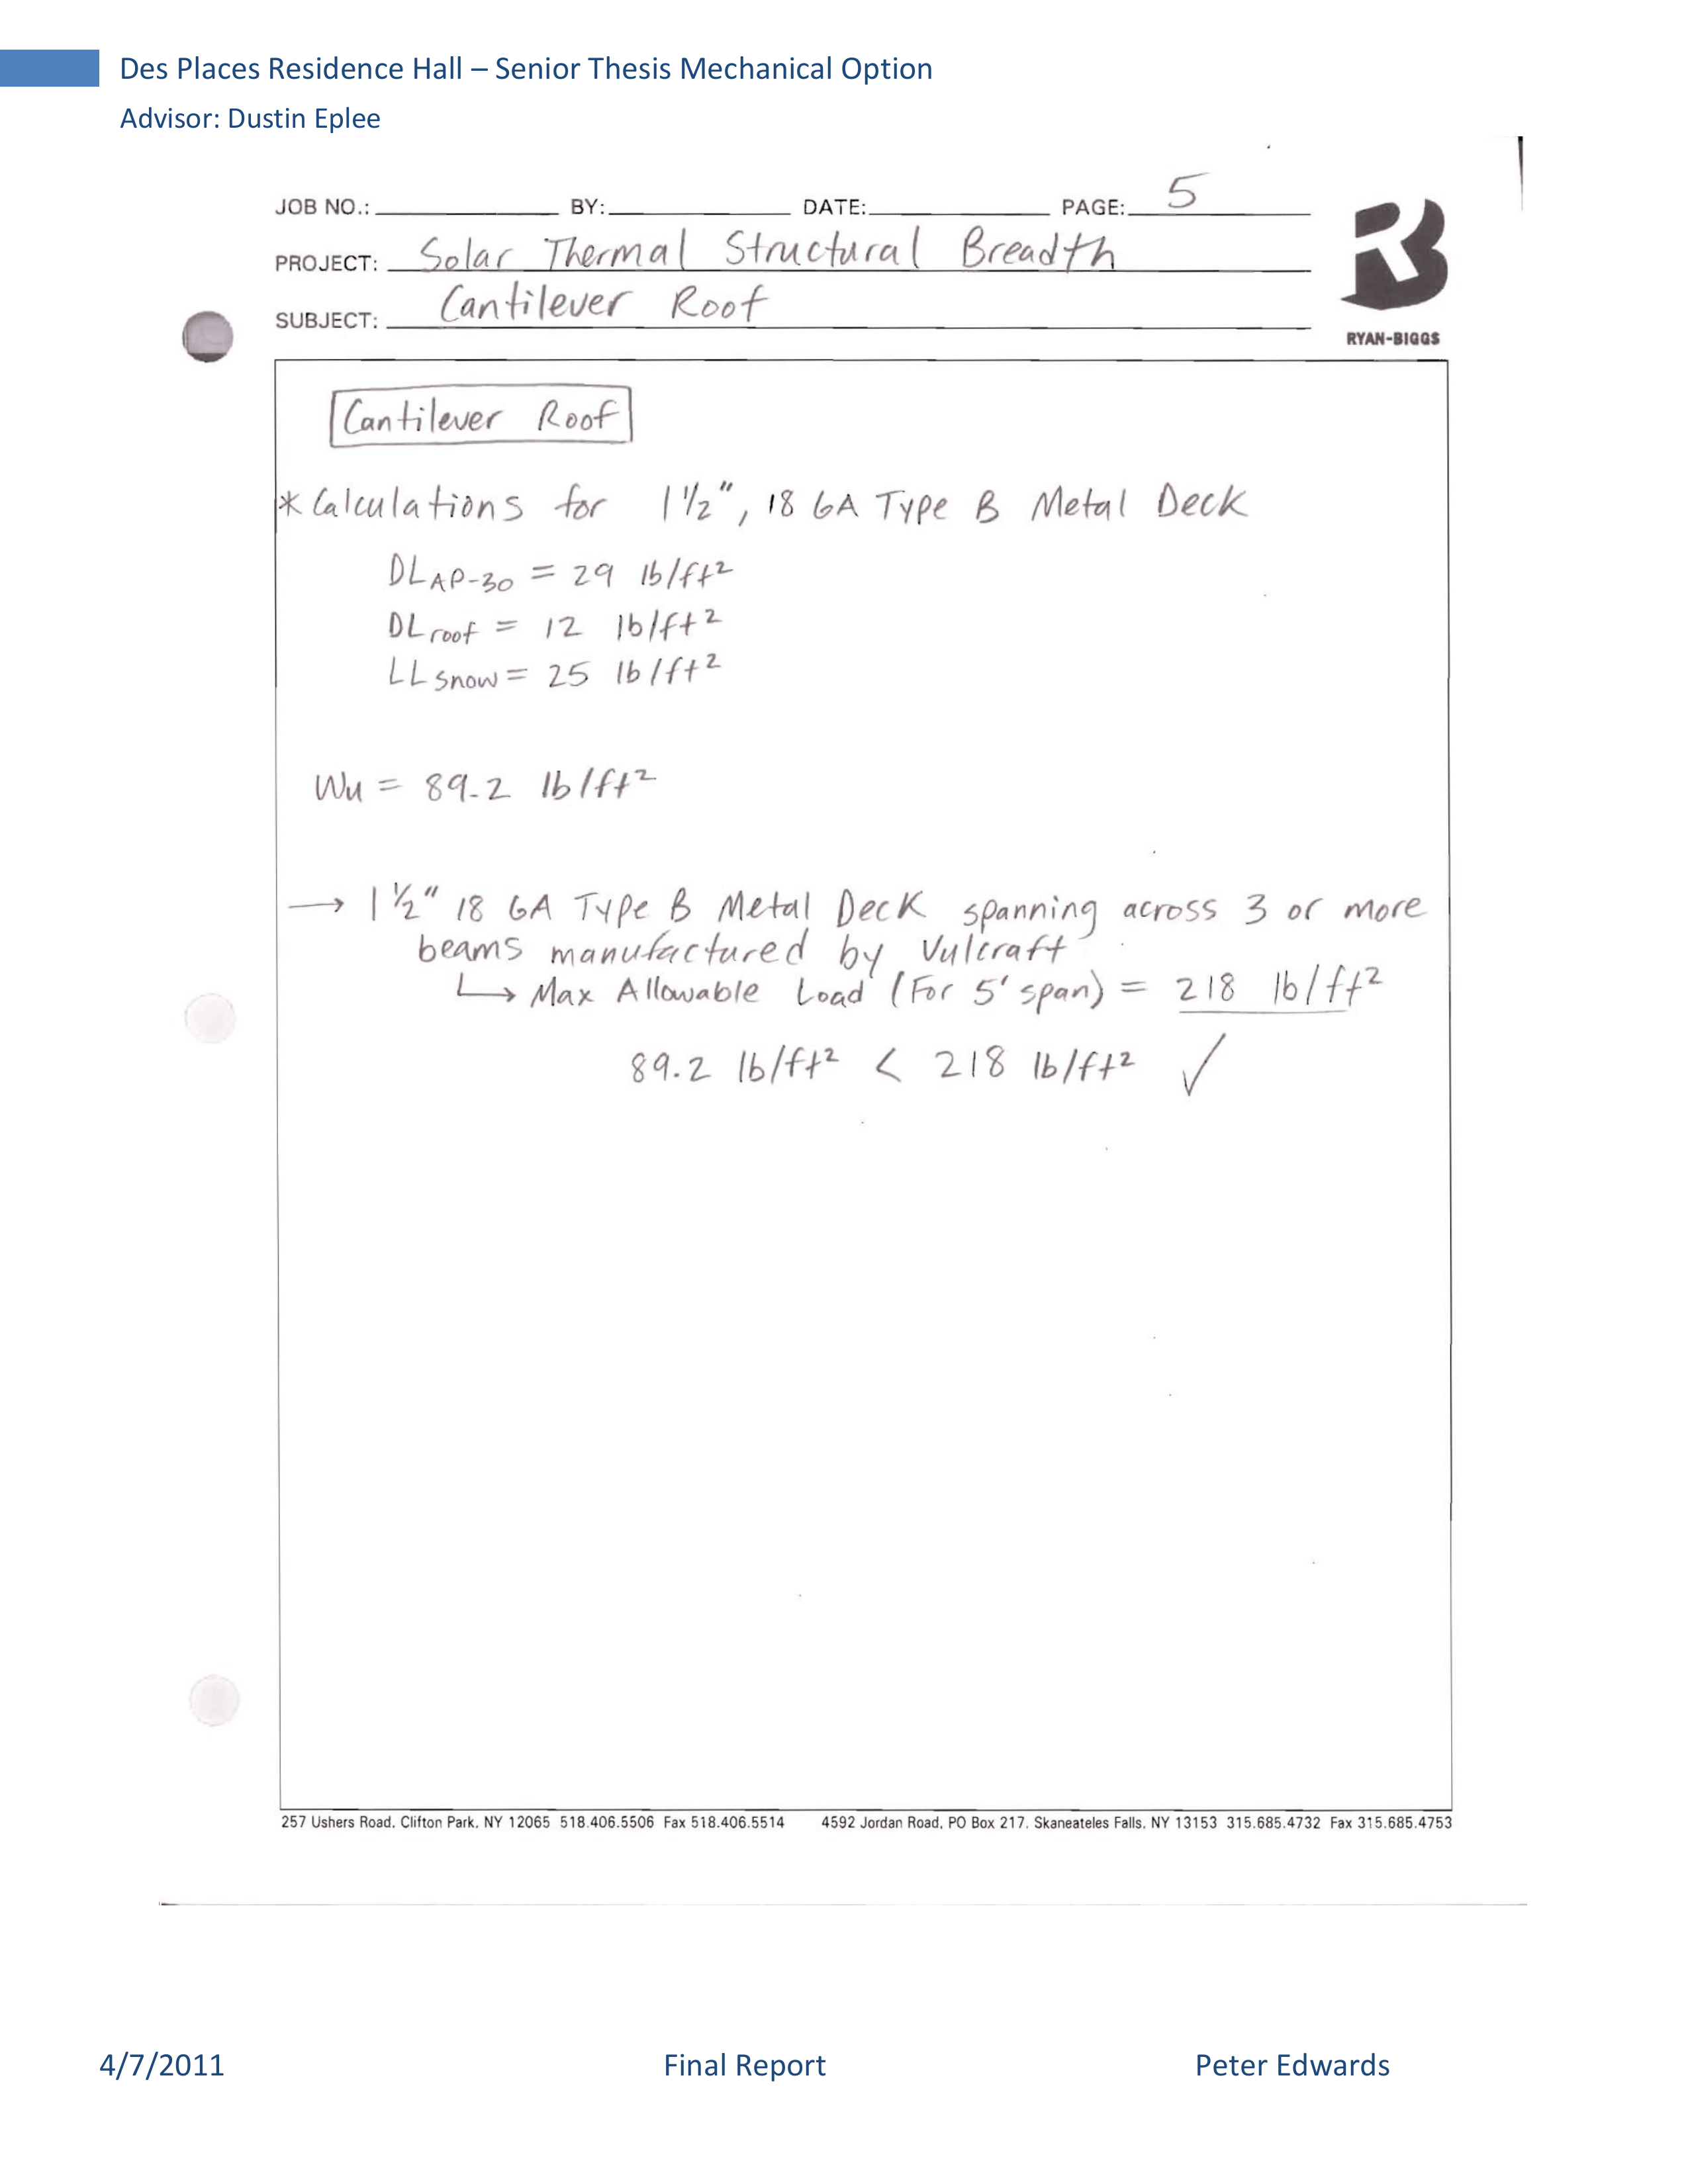 Des Places Residence Hall – Senior Thesis Mechanical Option
Advisor: Dustin Eplee
JOB NO.: BY: DATE: PAGE: 5
PROJECT: Solar Thermal Structural Breadth
SUBJECT: Cantilever Roof
RYAN-BIGGS
Cantilever Roof
* Calculations for 1 1/2", 18 GA Type B Metal Deck
DL AP-30 = 29 lb/ft²
DL roof = 12 lb/ft²
LL snow = 25 lb/ft²
Wu = 89.2 lb/ft²
→ 1 1/2" 18 GA Type B Metal Deck spanning across 3 or more
beams manufactured by Vulcraft
↳ Max Allowable Load (For 5' span) = 218 lb/ft²
89.2 lb/ft² < 218 lb/ft² ✓
257 Ushers Road, Clifton Park, NY 12065 518.406.5506 Fax 518.406.5514 4592 Jordan Road, PO Box 217, Skaneateles Falls, NY 13153 315.685.4732 Fax 315.685.4753
4/7/2011 Final Report Peter Edwards